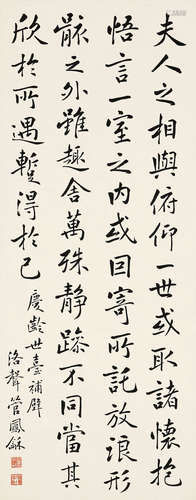 夫人之相與俯仰一世或取諸懷抱
悟言一室之內或因寄所託放浪形
骸之外雖趣舍萬殊静躁不同當其
欣於所遇蹔得於己
慶齡世臺補壁
洛聲管鳳龢